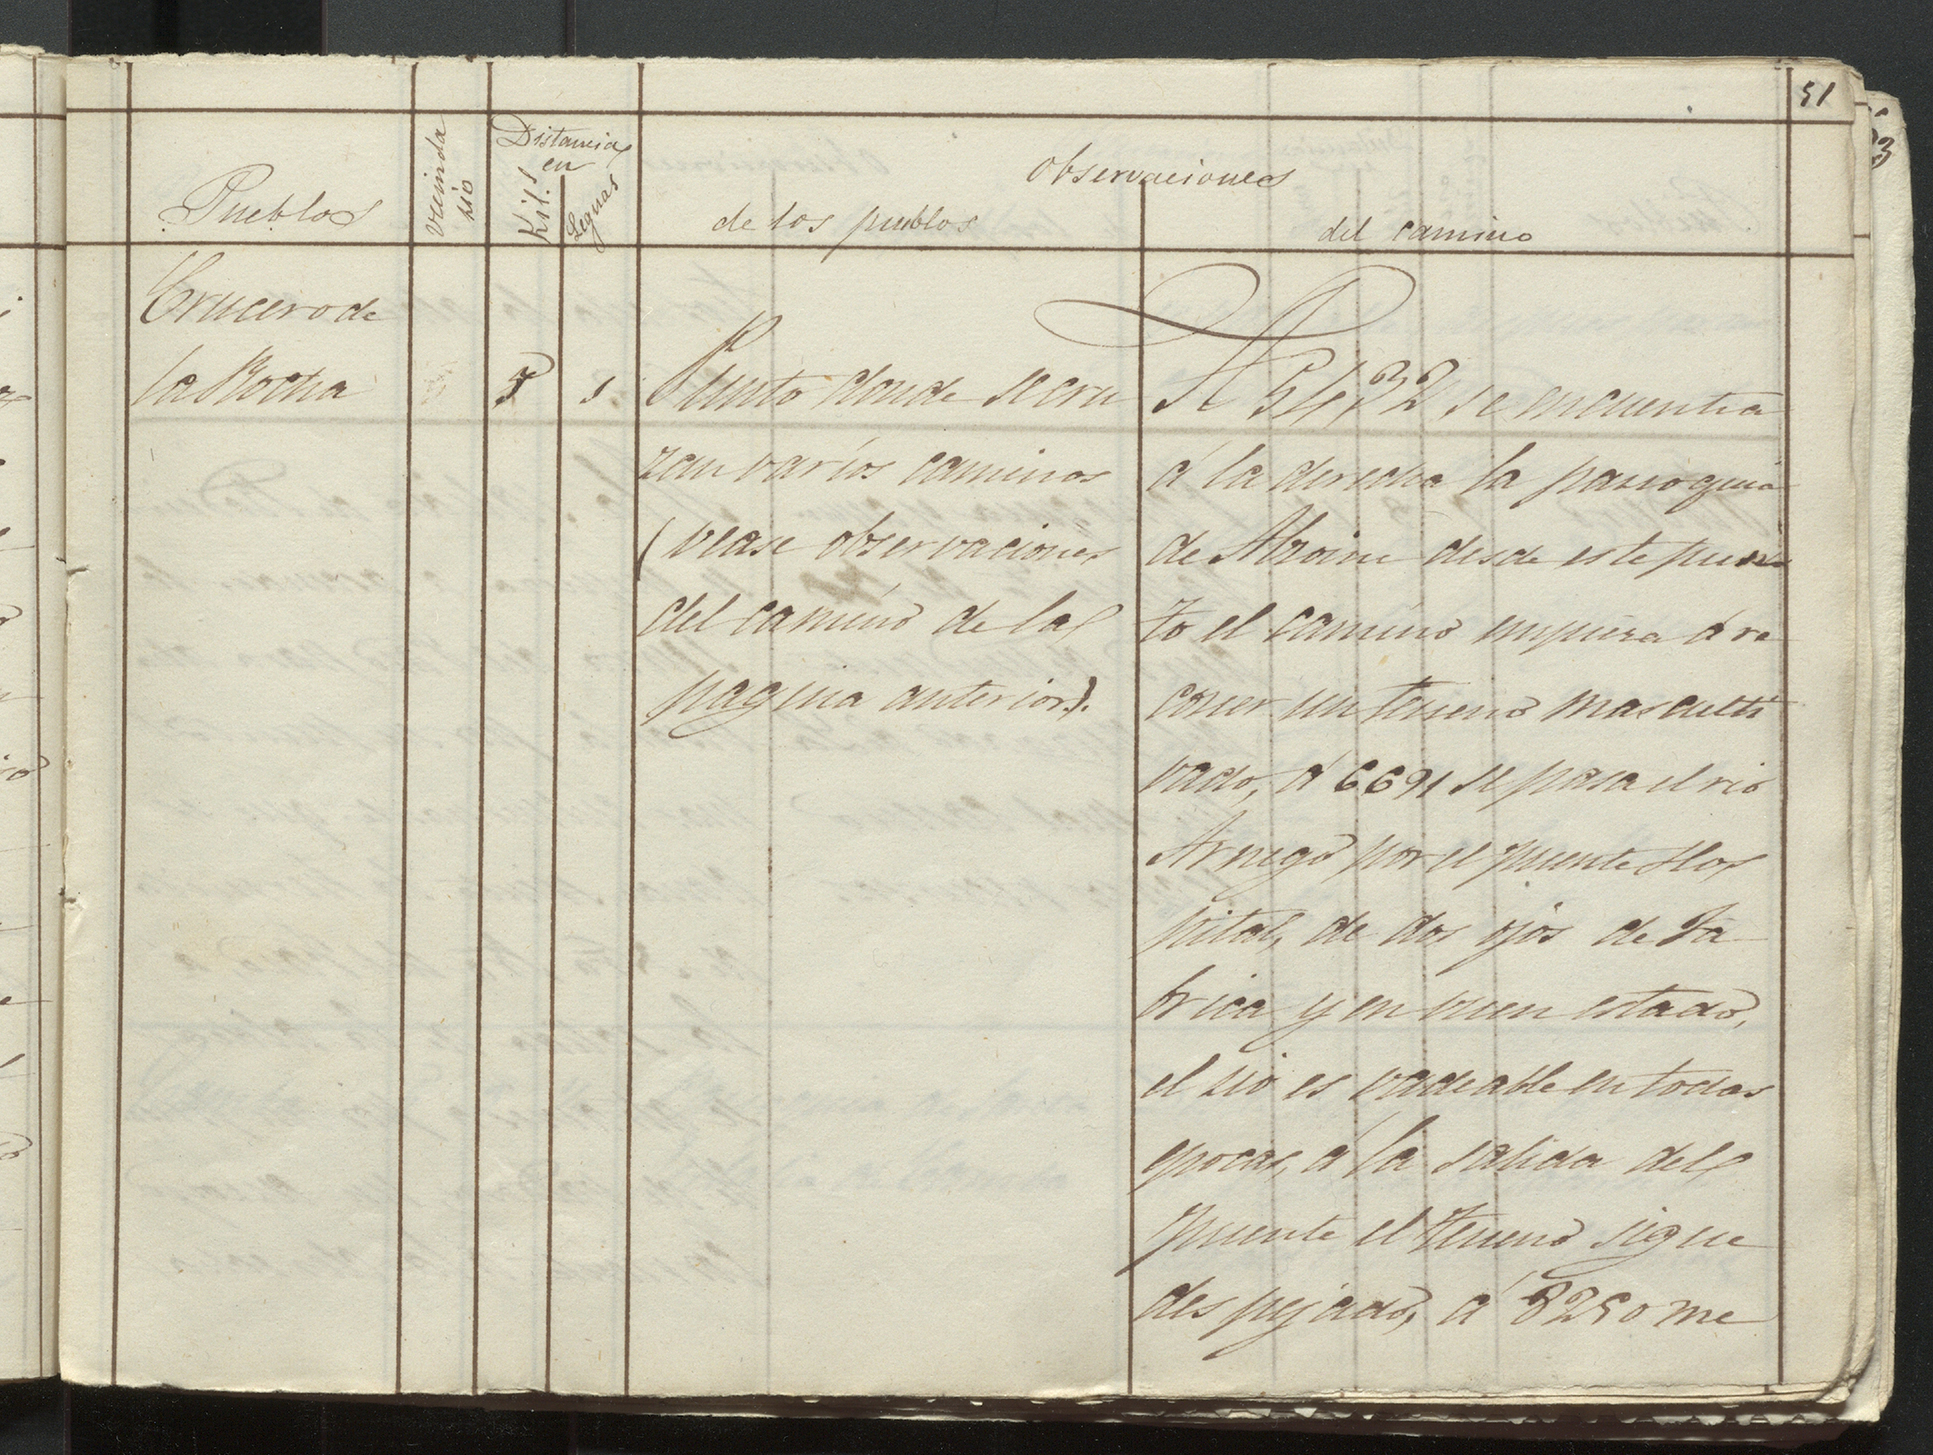 51
Pueblos
vecinda
rio
Distancia
en
Kil.s
Leguas
Observaciones
de los pueblos
del camino
Crucero de
la Rocha
5
1
Punto donde se cru
zan varios caminos
(vease observaciones
del camino de la
pagina anterior).
A 5432 se encuentra
á la derecha la parroquia
de desde este pun
to el camino empieza á re
correr un terreno mas culti
vado, á 6691 se pasa el rio
Arnego por el puente Hos
pital, de dos ojos de fa
brica y en buen estado,
el rio es vadeable en todas
epocas, á la salida del
puente el terreno sigue
despejado, á 8250 me